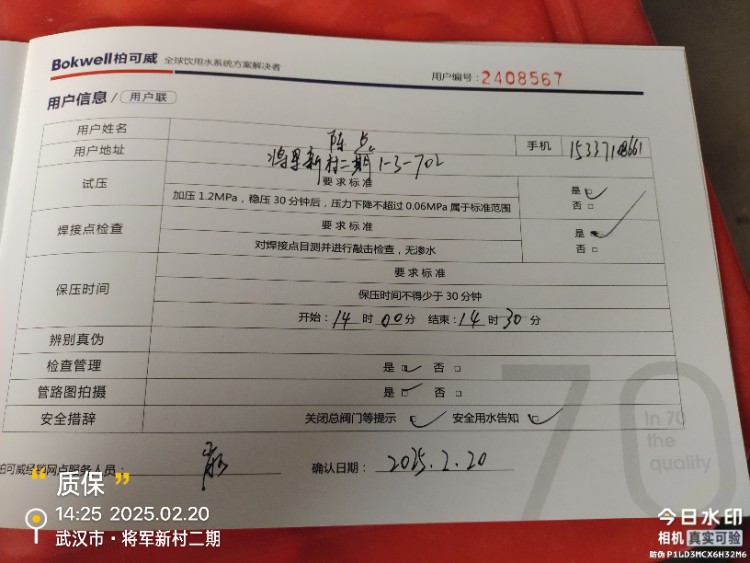 Bokwell柏可威 全球饮用水系统方案解决者
用户编号:2408567
用户信息/ 用户联
用户姓名 陈
手机
用户地址 将军新村二期1-3-702
试压
要求标准
加压1.2MPa，稳压30分钟后，压力下降不超过0.06MPa属于标准范围
是□
否□
焊接点检查
要求标准
对焊接点目测并进行敲击检查，无渗水
是
否□
保压时间
要求标准
保压时间不得少于30分钟
开始：14时00分 结束：14时30分
辨别真伪
检查管理 是□ 否□
管路图拍摄 是□ 否□
安全措辞 关闭总阀门等提示□ 安全用水告知□
柏可威经销网点服务人员：
确认日期：2025.2.20
70
In 70
the
quality
“质保”
14:25 2025.02.20
武汉市·将军新村二期
今日水印
相机 真实可验
防伪 P1LD3MCX6H32M6